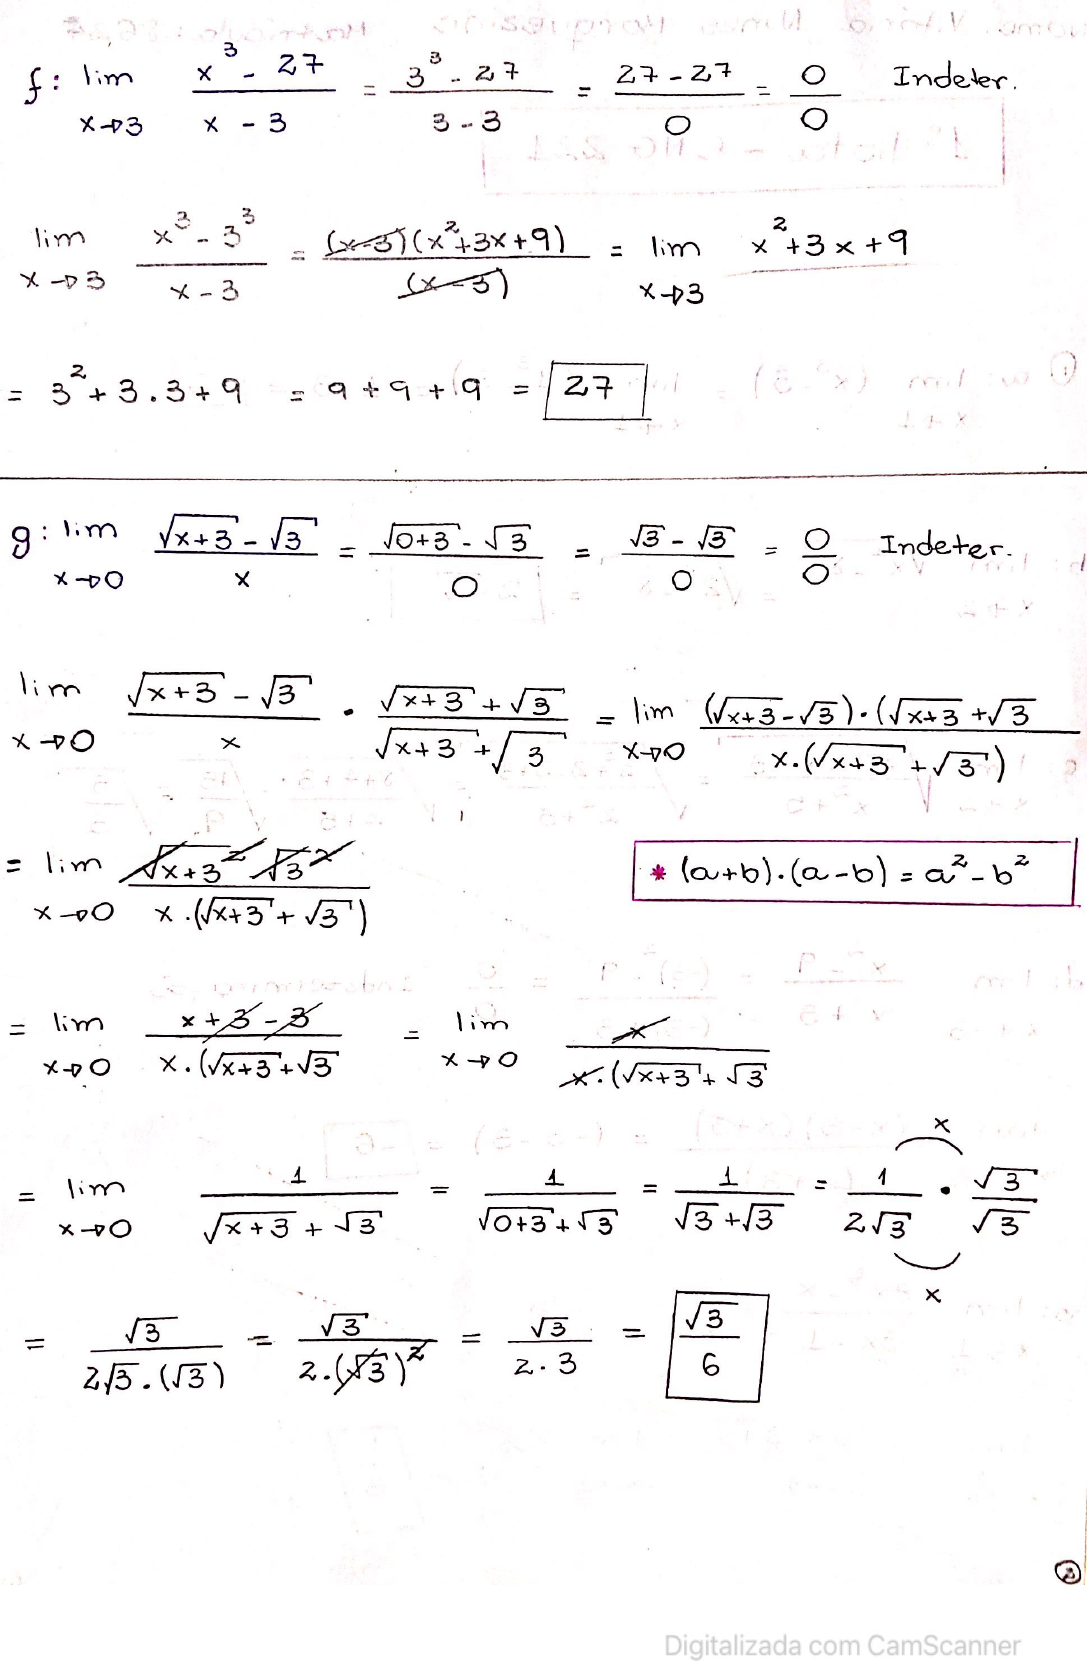 f: lim x→3 (x³ - 27)/(x - 3) = (3³ - 27)/(3 - 3) = (27 - 27)/0 = 0/0 Indeter.
lim x→3 (x³ - 3³)/(x - 3) = (x-3)(x²+3x+9)/(x-3) = lim x→3 x²+3x+9
= 3²+3.3+9 = 9+9+9 = 27
g: lim x→0 (√(x+3) - √3)/x = (√(0+3) - √3)/0 = (√3 - √3)/0 = 0/0 Indeter.
lim x→0 (√(x+3) - √3)/x · (√(x+3) + √3)/(√(x+3) + √3) = lim x→0 (√(x+3)-√3)·(√(x+3)+√3/x.(√(x+3)+√3)
= lim x→0 √(x+3)² √3²/x.(√(x+3)+√3)
* (a+b).(a-b) = a² - b²
= lim x→0 (x+3-3)/x.(√(x+3)+√3 = lim x→0 x/x.(√(x+3)+√3
= lim x→0 1/(√(x+3)+√3) = 1/(√(0+3)+√3) = 1/(√3+√3) = 1/2√3 · √3/√3 x x
= √3/2√3.(√3) = √3/2.(√3)² = √3/2.3 = √3/6
Digitalizada com CamScanner